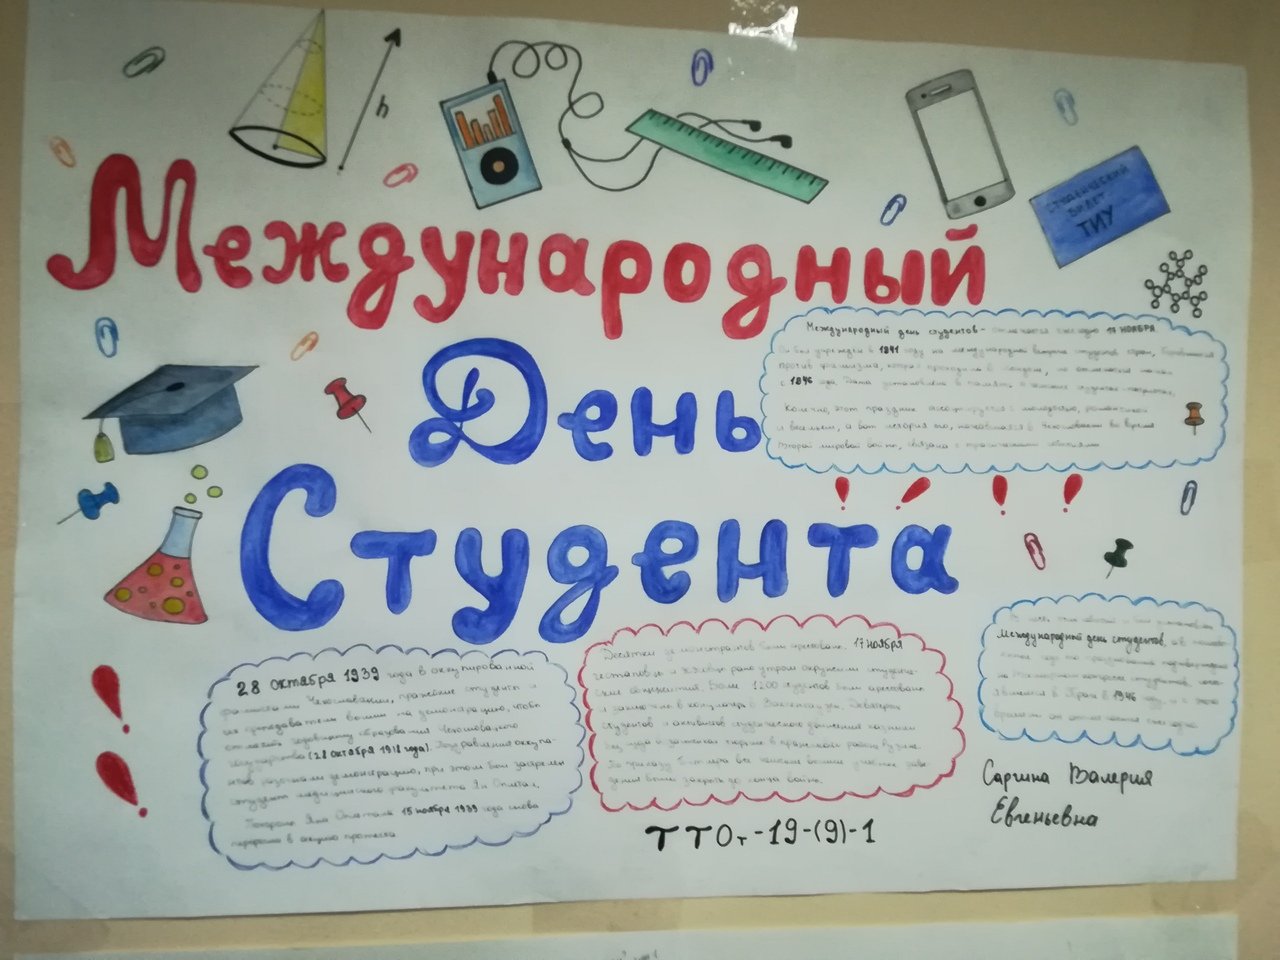 h
СТУДЕНЧЕСКИЙ
БИЛЕТ
ТИУ
Международный
День
Студента
Международный день студентов - отмечается ежегодно 17 НОЯБРЯ
Он был учрежден в 1941 году на международной встрече студентов стран, боровшихся
против фашизма, которая проходила в Лондоне, но отмечаться начал
с 1946 года. Дата установлена в память о чешских студентах-патриотах.
Конечно, этот праздник ассоциируется с молодостью, романтикой
и весельем, а вот история его, начавшаяся в Чехословакии во время
Второй мировой войны, связана с трагическими событиями
28 октября 1939 года в оккупированной
фашистами Чехословакии, пражские студенты и
их преподаватели вышли на демонстрацию, чтобы
отметить годовщину образования Чехословацкого
государства (28 октября 1918 года). Подразделения оккупа-
нтов разогнали демонстрацию, при этом был застрелен
студент медицинского факультета Ян Оплетал.
Похороны Яна Оплетала 15 ноября 1939 года снова
переросли в акцию протеста
Десятки демонстрантов были арестованы. 17 НОЯБРЯ
гестаповцы и эсэсовцы рано утром окружили студенче-
ские общежития. Более 1200 студентов были арестованы
и заключены в концлагерь в Заксенхаузен. Девятерых
студентов и активистов студенческого движения казнили
без суда в застенках тюрьмы в пражском районе Рузине.
По приказу Гитлера все чешские высшие учебные заве-
дения были закрыты до конца войны.
В честь этих событий и был установлен
Международный день студентов.
на Всемирном конгрессе студентов, состо-
явшемся в Праге в 1946 году, и с этого
времени он отмечается ежегодно
Саргина Валерия
Евгеньевна
ТТОт-19-(9)-1